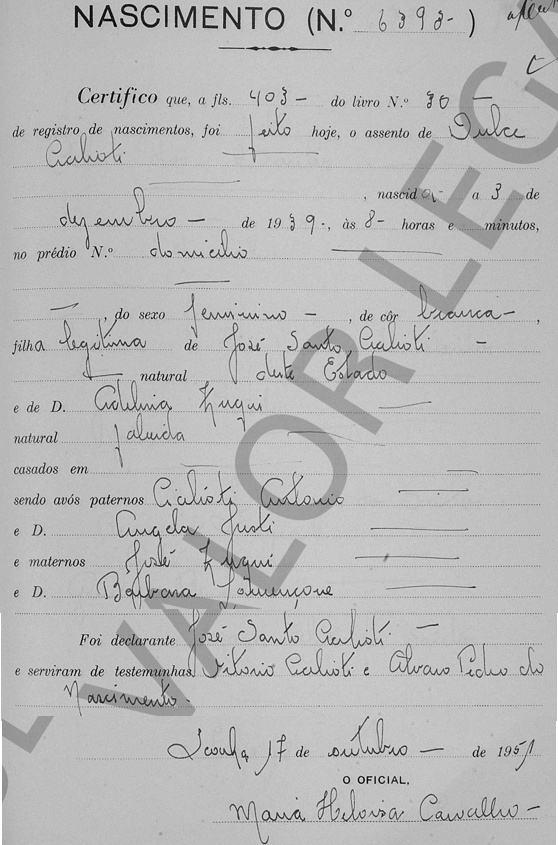 NASCIMENTO (N.º 6393-)
Certifico que, a fls. 403- do livro N.º 30 -
de registro de nascimentos, foi feito hoje, o assento de Dulce
Cialioti
, nascida- a 3 de
dezembro - de 1939-, às 8- horas e minutos,
no prédio N.º domicílio
, do sexo feminino -, de côr branca-,
filha legitima de José Santo Cialioti -
natural deste Estado
e de D. Adelmia Zuqui
natural falecida
casados em
sendo avós paternos Cialioti Antonio
e D. Angela Justi
e maternos José Zuqui
e D. Barbara
Foi declarante José Santo Cialioti -
e serviram de testemunhas, Vitorio Cialioti e Alvaro Pedro do
Nascimento.
17 de outubro - de 1951
O OFICIAL,
Maria Heloisa Carvalho-
VALOR LEGA